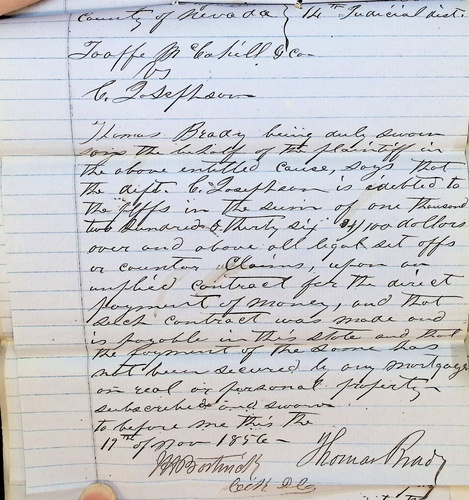 County of Nevada } 14th Judicial dist.
Taaffe McCahill & Co
vs
C. Josephson
Thomas Brady being duly sworn
says the behalf of the plaintiff in
the above entitled cause, says that
the defts C. Josephson is edebted to
the plffs in the sum of one thousand
two hundred & thirty six 34/100 dollars
over and above all legal set offs
or counter Claims, upon an
implied contract for the direct
payment of money, and that
such contract was made and
is payable in this state and that
the payment of the same has
not been secured by any mortgage
on real or personal property
subscribed and sworn
to before me this the
17th of Nov 1856 Thomas Brady
Clk D.C.